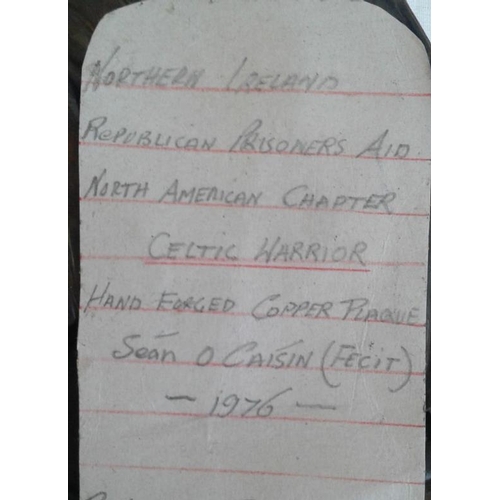 NORTHERN IRELAND
REPUBLICAN PRISONERS AID
NORTH AMERICAN CHAPTER
CELTIC WARRIOR
HAND FORGED COPPER PLAQUE
Seán O CAISÍN (FECIT)
— 1976 —